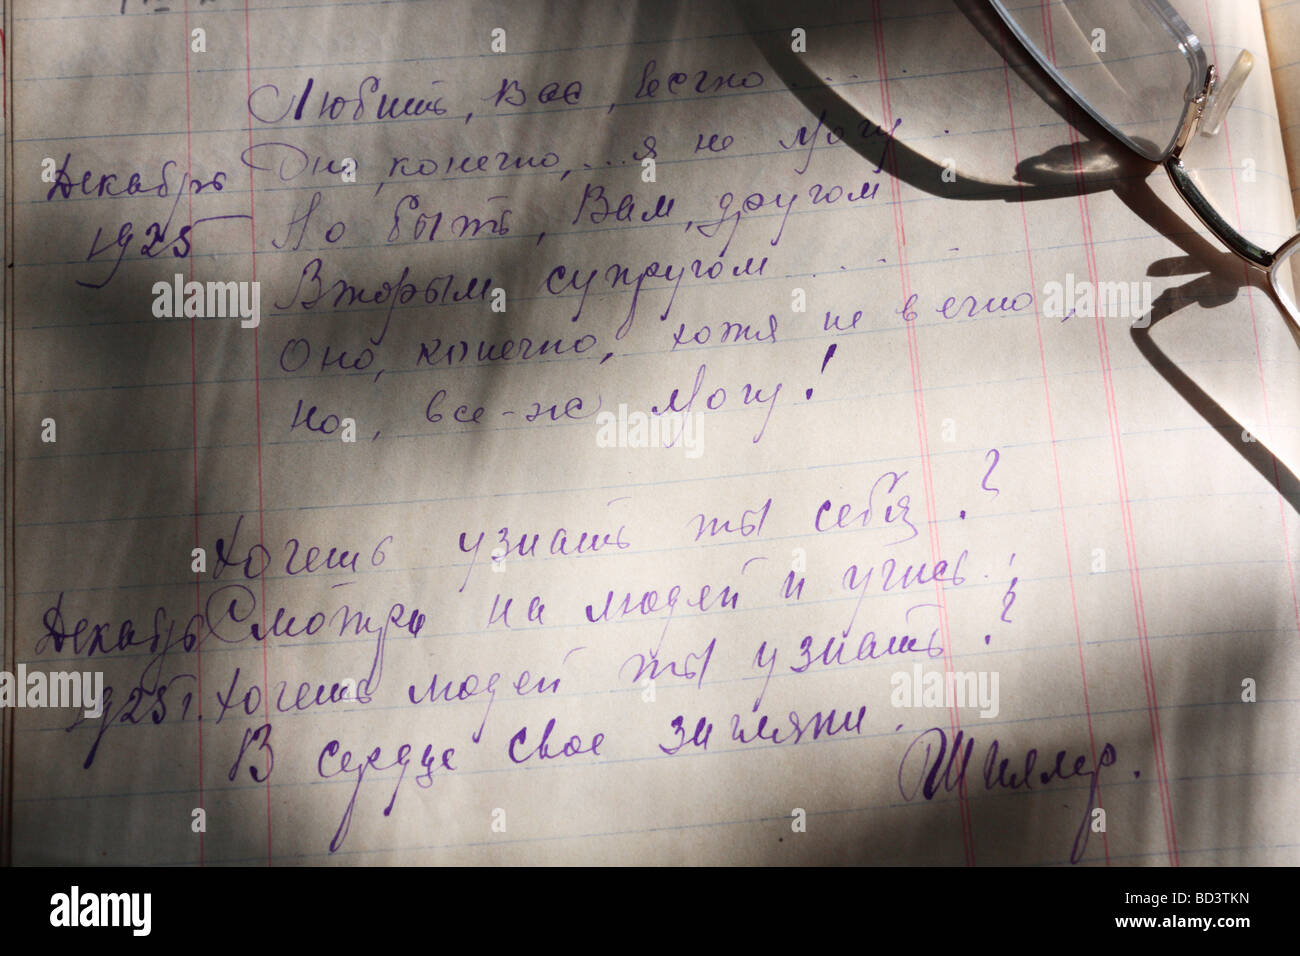 Любить, Вас, вечно .....
Декабрь
1925
Оно, конечно, ... я не Могу .
Но быть, Вам, другом
Вторым супругом .....
Оно, конечно, хотя не вечно,
Но, все-же Могу!
Хочешь узнать ты себя?
Декабрь
1925 г.
Смотри на людей и учись !
Хочешь людей ты узнать?
В сердце свое загляни.
Шиллер.
alamy
Image ID: BD3TKN
www.alamy.com